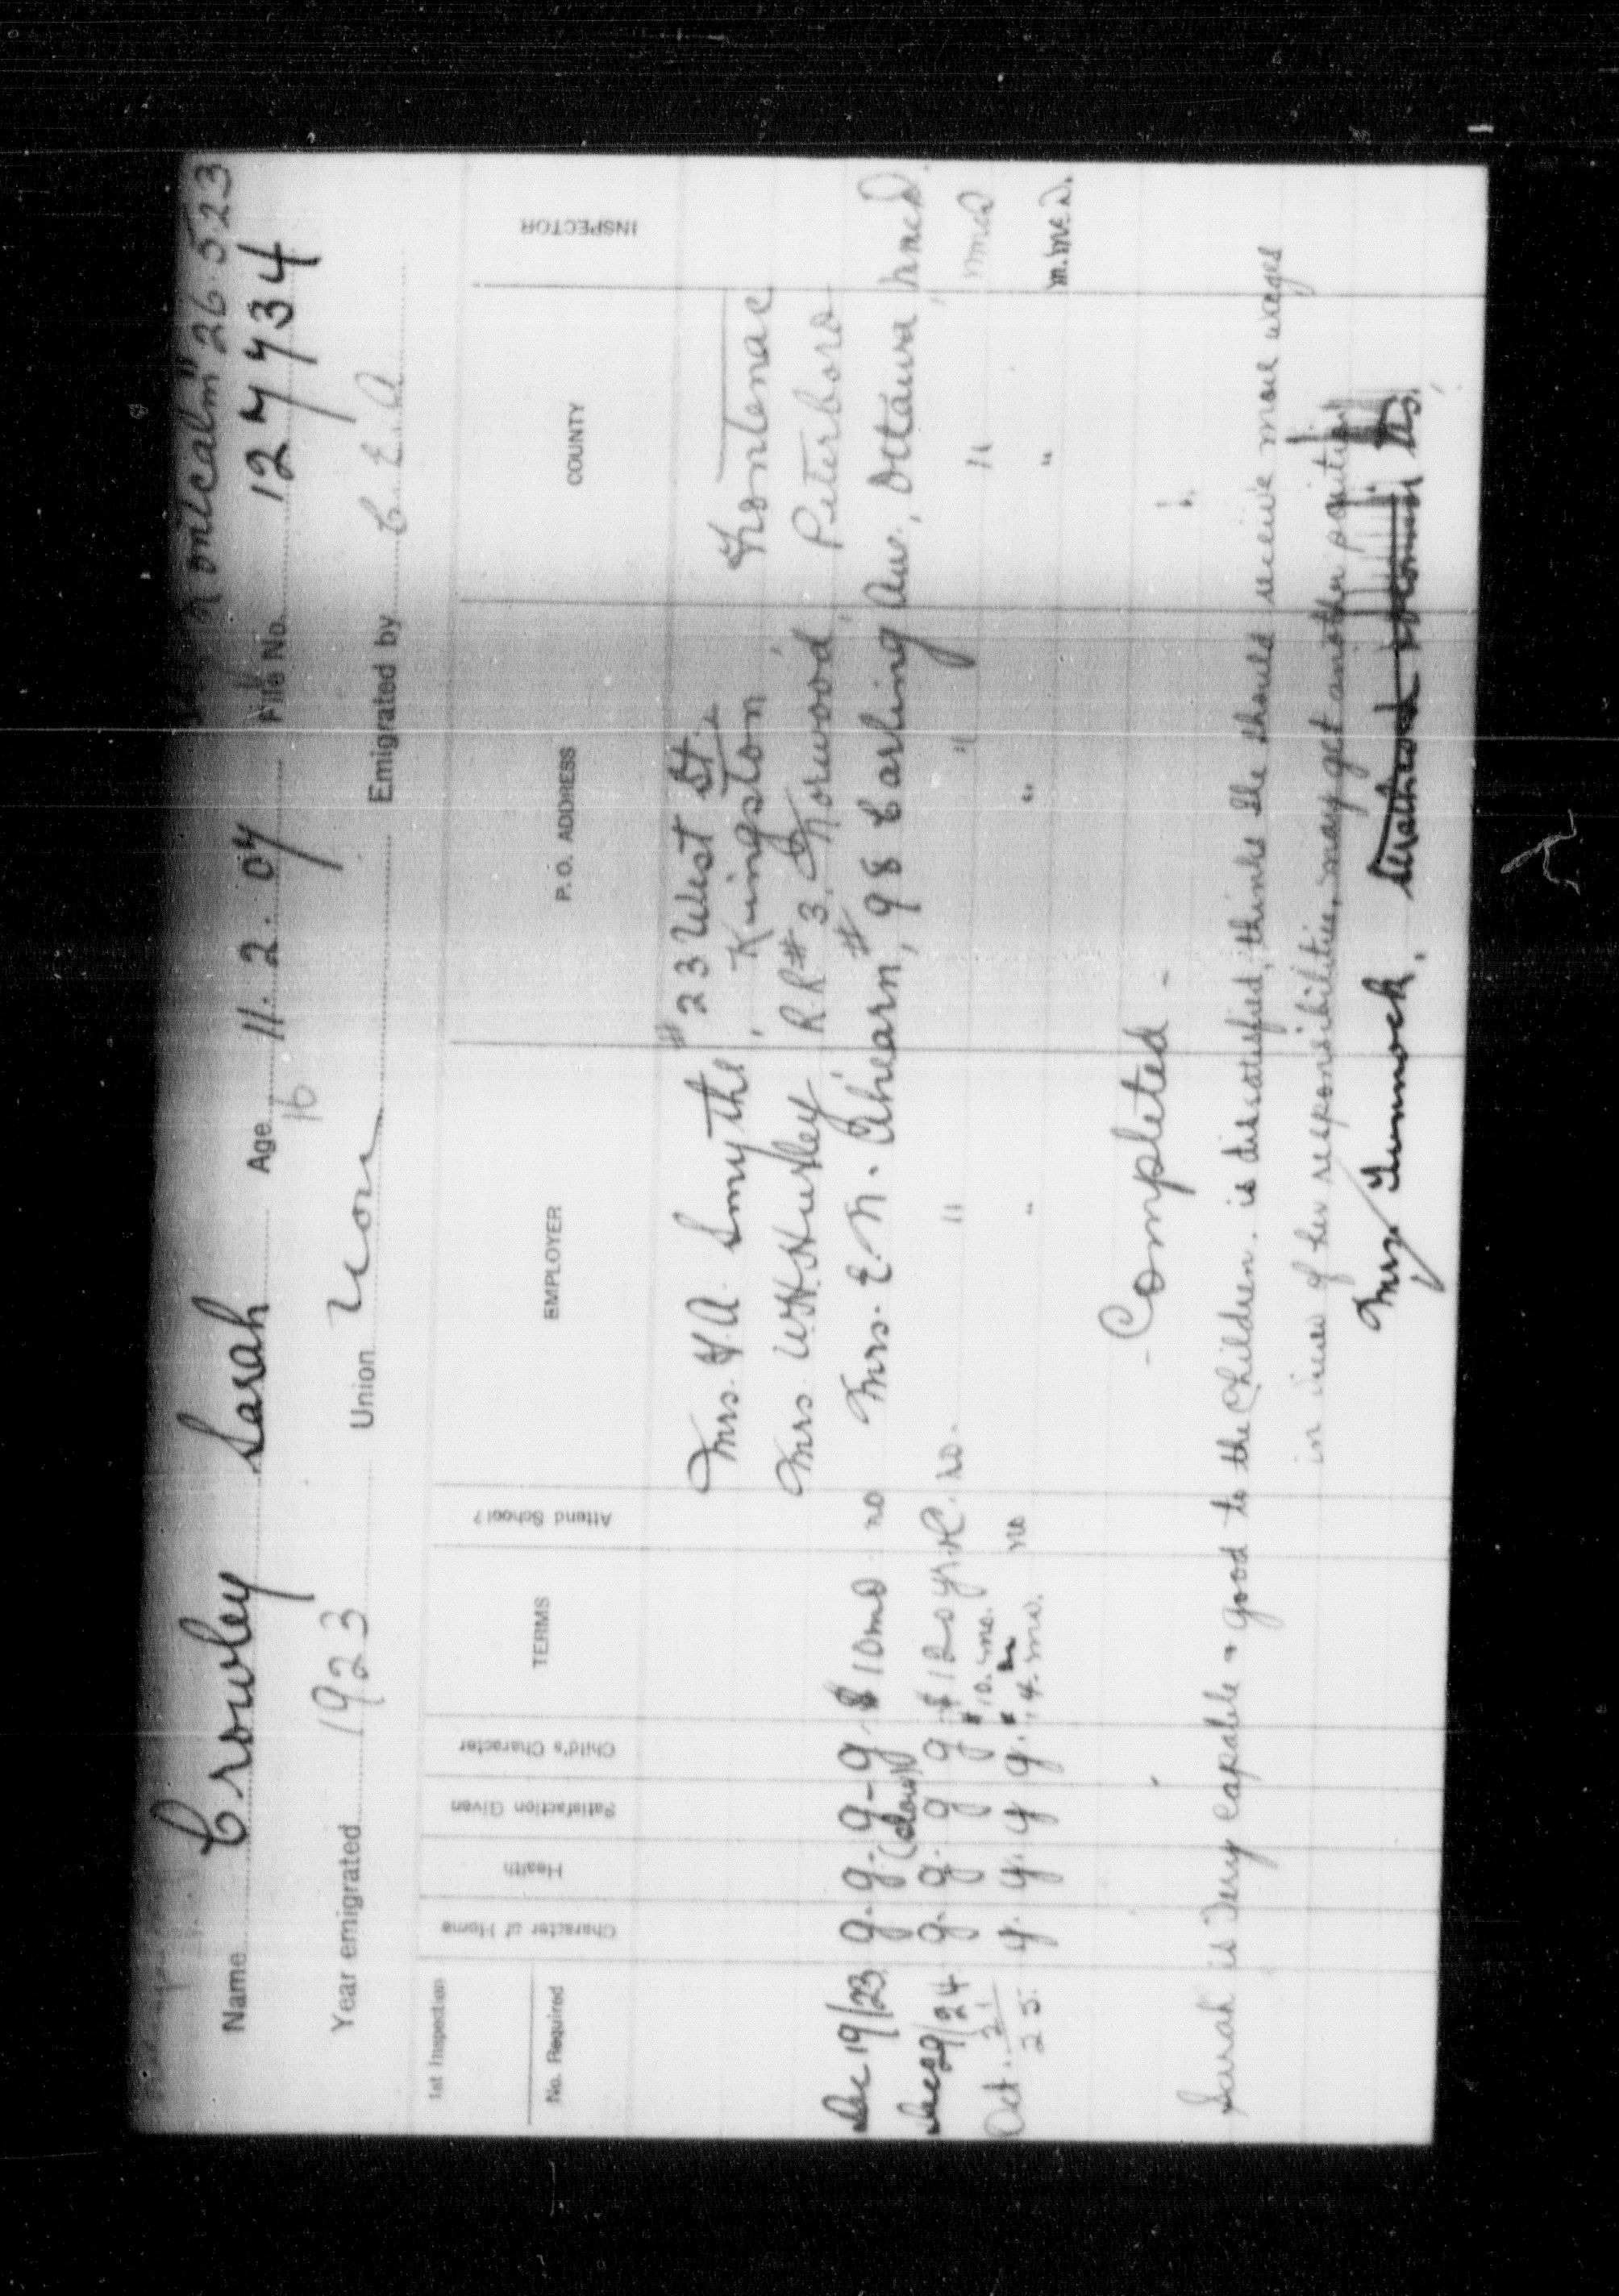 "Montcalm" 26.5.23
Name Crowley Sarah Age 11. 2. 07 File No. 127734
16
Year emigrated 1923 Union Non Emigrated by C.E.A
1st Inspection
No. Required Character of Home Health Satisfaction Given Child's Character TERMS Attend School? EMPLOYER P. O. ADDRESS COUNTY INSPECTOR
Mrs. H.A. Smythe, # 23 West St.,
Kingston Frontenac
Mrs W.H. Hurley, R.R # 3, Norwood, Peterboro
Dec 19/23 g. g. g - g. $10 mo no Mrs. E. N. Ahearn, # 98 Carling Ave., Ottawa,
(slow)
Dec 29/24 g. g. g g $120 yr. no. " " "
Oct. 21 $10. mo.
25. g. g. g g. 14. mo. no " " " m.mcd.
- Completed -
Sarah is Very Capable & good to the Children. is dissatisfied, thinks she should receive more wages
in view of her responsibilities, may get another position